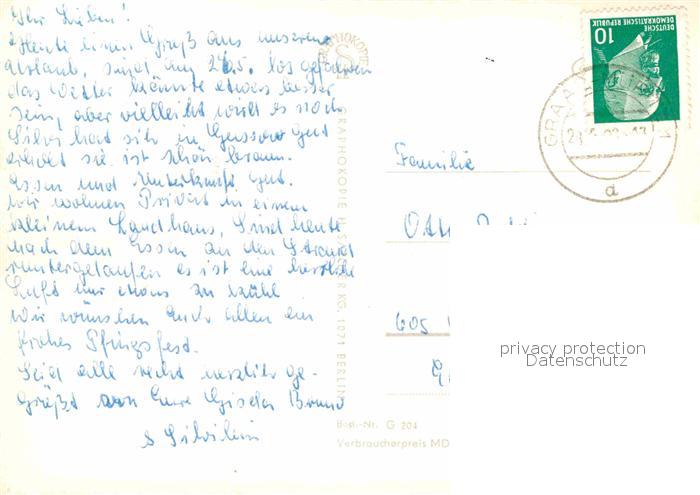 Ihr Lieben!
Heute einen Gruß aus unserem
Urlaub, sind am 26.5. los gefahren
das Wetter könnte etwas besser
sein, aber vielleicht wird es noch
Silvi hat sich in gut
erholt sie ist schön braun.
Essen und Unterkunft gut.
Wir wohnen Privat in einem
kleinem Landhaus, Sind heute
nach dem Essen an den Strand
runtergelaufen es ist eine herrliche
Luft nur etwas zu kühl
Wir wünschen Euch allen ein
frohes Pfingsfest.
Seid alle recht herzlich ge-
grüßt von Eure Gisela Bernd
& Silvilein
GRAPHOKOPIE
GRAPHOKOPIE H. KG, 1071 BERLIN
Best.-Nr. G 204
Verbraucherpreis MD
DEUTSCHE
DEMOKRATISCHE REPUBLIK
10
GRAA
a
Familie
Ott
605
privacy protection
Datenschutz